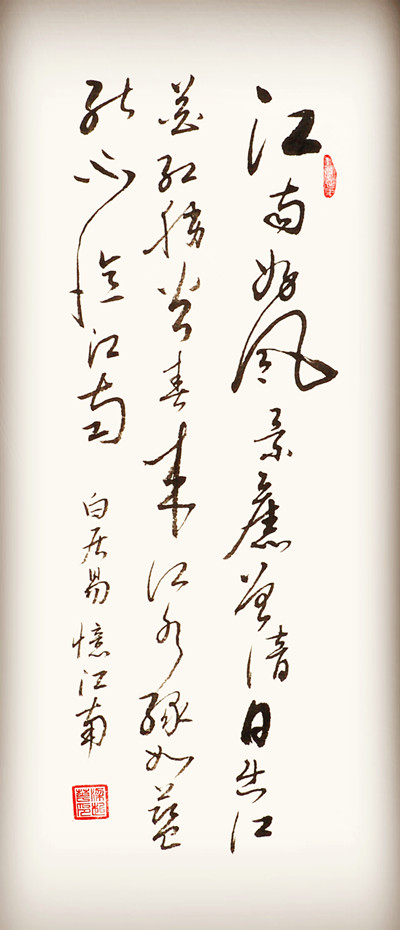 江南好風景舊曾諳日出江
花紅勝火春來江水綠如藍
能不憶江南
白居易憶江南